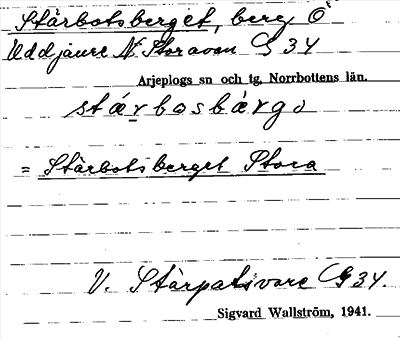 Stärbotsberget, berg Ö
Uddjaure N Storavan G 34
Arjeplogs sn och tg, Norrbottens län.
stá̤rbosbàrgo
= Stärbotsberget Stora
V. Stärpatsvare G 34.
Sigvard Wallström, 1941.